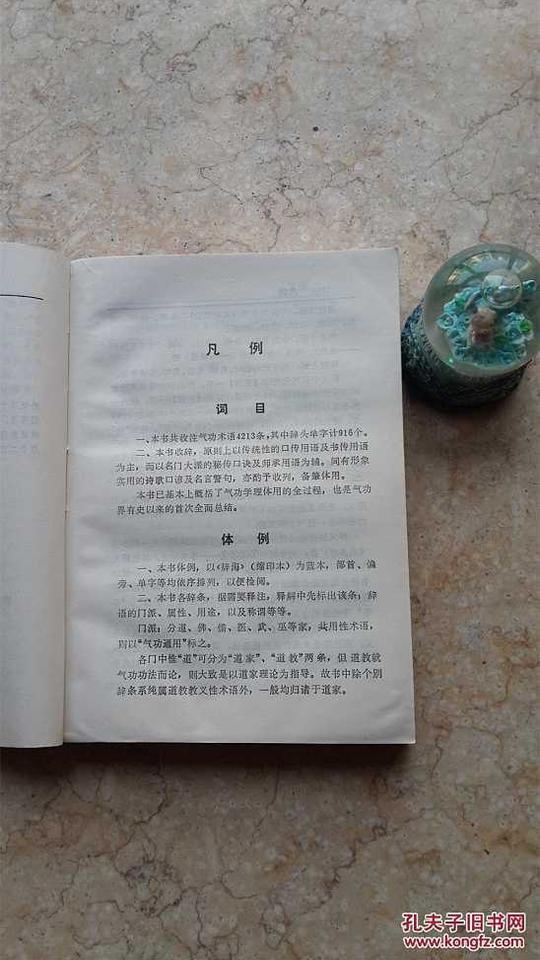 凡例
词目
一、本书共收注气功术语4213条，其中辞头单字计916个。
二、本书收辞，原则上以传统性的口传用语及书传用语
为主，而以名门大派的秘传口诀及师承用语为辅。间有形象
实用的诗歌口谚及名言警句，亦酌予收列，备肇体用。
本书已基本上概括了气功学理体用的全过程，也是气功
界有史以来的首次全面总结。
体例
一、本书体例，以《辞海》（缩印本）为蓝本，部首、偏
旁、单字等均依序排列，以便检阅。
二、本书各辞条，据需要释注，释解中先标出该条：辞
语的门派、属性、用途，以及称谓等等。
门派：分道、佛、儒、医、武、巫等家，共用性术语，
则以“气功通用”标之。
各门中惟“道”可分为“道家”、“道教”两条，但道教就
气功功法而论，则大致是以道家理论为指导。故书中除个别
辞条系纯属道教教义性术语外，一般均归诸于道家。
孔夫子旧书网
www.kongfz.com